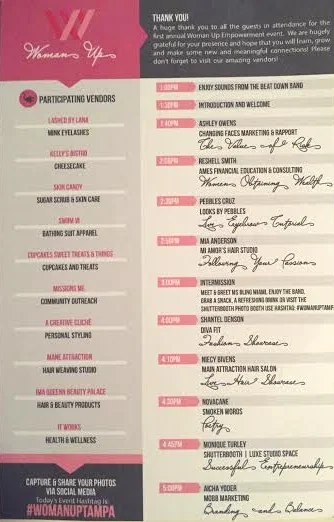 W
Woman Up
PARTICIPATING VENDORS
LASHED BY LANA
MINK EYELASHES
KELLY'S BISTRO
CHEESECAKE
SKIN CANDY
SUGAR SCRUB & SKIN CARE
SWIM VI
BATHING SUIT APPAREL
CUPCAKES SWEET TREATS & THINGS
CUPCAKES AND TREATS
MISSIONS ME
COMMUNITY OUTREACH
A CREATIVE CLICHÉ
PERSONAL STYLING
MANE ATTRACTION
HAIR WEAVING STUDIO
IMA QUEENS BEAUTY PALACE
HAIR & BEAUTY PRODUCTS
IT WORKS
HEALTH & WELLNESS
CAPTURE & SHARE YOUR PHOTOS
VIA SOCIAL MEDIA
Today's Event Hashtag is:
#WOMANUPTAMPA
THANK YOU!
A huge thank you to all the guests in attendance for the
first annual Woman Up Empowerment event. We are hugely
grateful for your presence and hope that you will learn, grow
and make some new and meaningful connections! Please
don't forget to visit our amazing vendors!
1:00PM ENJOY SOUNDS FROM THE BEAT DOWN BAND
1:30PM INTRODUCTION AND WELCOME
1:40PM ASHLEY OWENS
CHANGING FACES MARKETING & RAPPORT
The Value of Risk
2:00PM RESHELL SMITH
AMES FINANCIAL EDUCATION & CONSULTING
Women Obtaining Wealth
2:30PM PEBBLES CRUZ
LOOKS BY PEBBLES
Live Eyebrow Tutorial
2:50PM MIA ANDERSON
MI AMOR'S HAIR STUDIO
Following Your Passions
3:00PM INTERMISSION
MEET & GREET MS BLING MIAMI, ENJOY THE BAND,
GRAB A SNACK, A REFRESHING DRINK OR VISIT THE
SHUTTERBOOTH PHOTO BOOTH USE HASHTAG: #WOMANUPTAMPA
4:00PM SHANTEL DENSON
DIVA FIT
Fashion Showcase
4:10PM NIECY BIVENS
MAIN ATTRACTION HAIR SALON
Live Hair Showcase
4:30PM NOVACANE
SMOKEN WORDS
Poetry
4:45PM MONIQUE TURLEY
SHUTTERBOOTH | LUXE STUDIO SPACE
Successful Entrepreneurship
5:00PM AICHA YODER
MOBB MARKETING
Branding and Balance